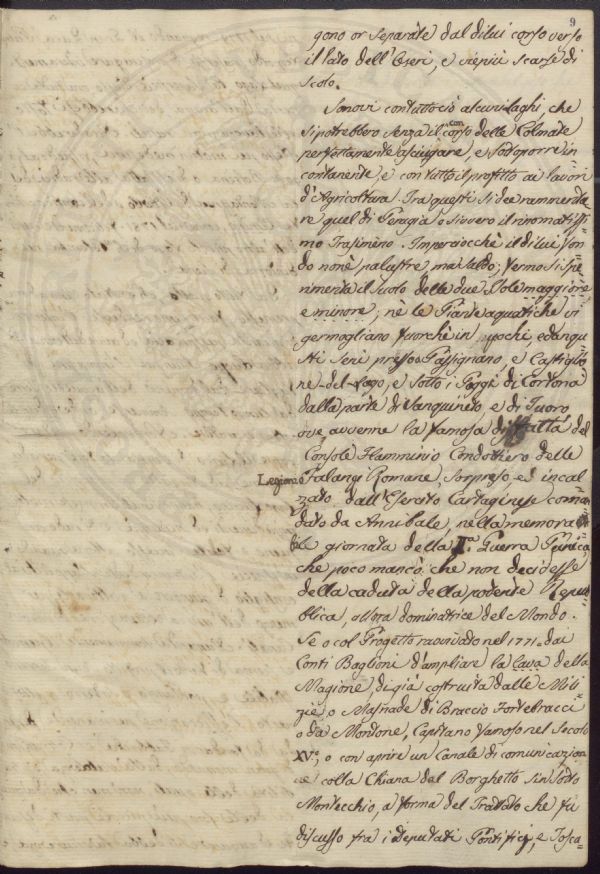 9
gono or separate dal dilui corso verso
il lato dell'Eseri, e vieppiù scarse di
scolo.
Sonovi contuttociò alcuni laghi, che
si potrebbero senza il con corso delle Colmate
perfettamente asciugare, e sottoporre in
contanente, e con tutto il profitto ai lavori
d'Agricoltura. Tra questi si dee rammenta=
re quel di Perugia o sivvero il rinomatissi=
mo Trasimeno. Imperciocchè il dilui fon=
do non è palustre, ma saldo; fermo si spe=
rimenta il suolo delle due Isole maggiore
e minore; nè le Piante aquatiche vi
germogliano fuorchè in pochi, ed angu=
sti seni presso Passignano, e Castiglio=
ne-del-Lago, e sotto i Poggi di Cortona
dalla parte di Sanguineto, e di Tuoro
ove avvenne la famosa disfatta del
Console Flamminio Condottiero delle
Legioni
Falangi Romane, sorpreso, ed incal=
zato dall'Esercito Cartaginese coman=
dato da Annibale, nella memora=
bile giornata della II.a Guerra Punica,
che poco mancò che non decidesse
della caduta della potente Repub=
blica, allora dominatrice del Mondo.
Se o col Progetto ravvivato nel 1771 = dai
Conti Baglioni d'ampliare la Cava della
Magione, di già costruita dalle Mili=
zie, o Masnade di Braccio Fortebracci
o da Montone, Capitano famoso nel Secolo
XV.o, o con aprire un Canale di comunicazione
colla Chiana dal Borghetto sin sotto
Montecchio, a forma del Trattato che fu
discusso fra i Deputati Pontificj, e Tosca=